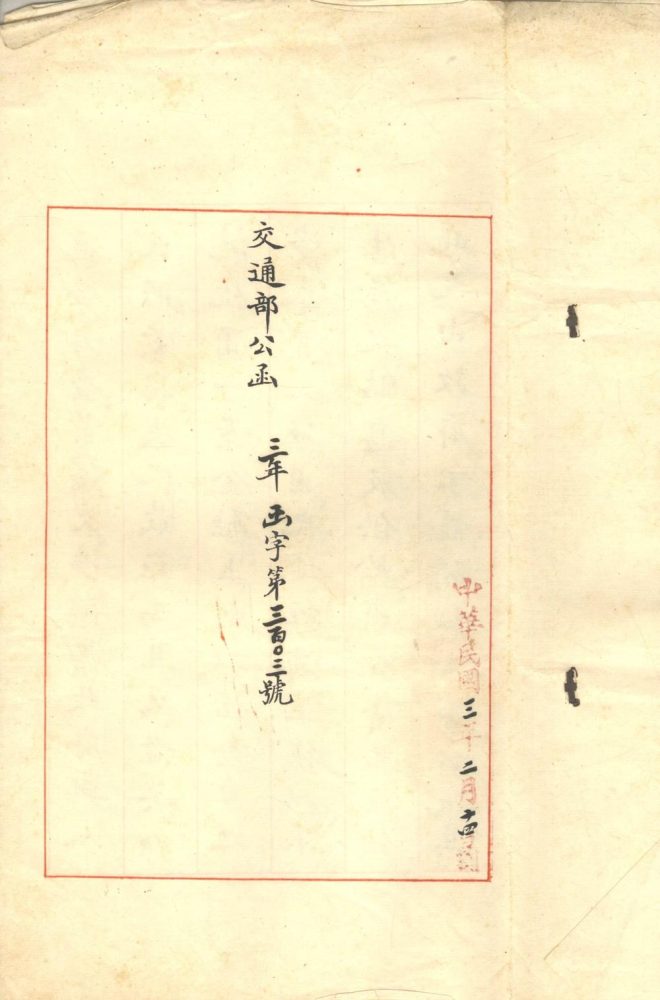 中華民國三年二月十四到
交通部公函 三年函字第三百〇三號